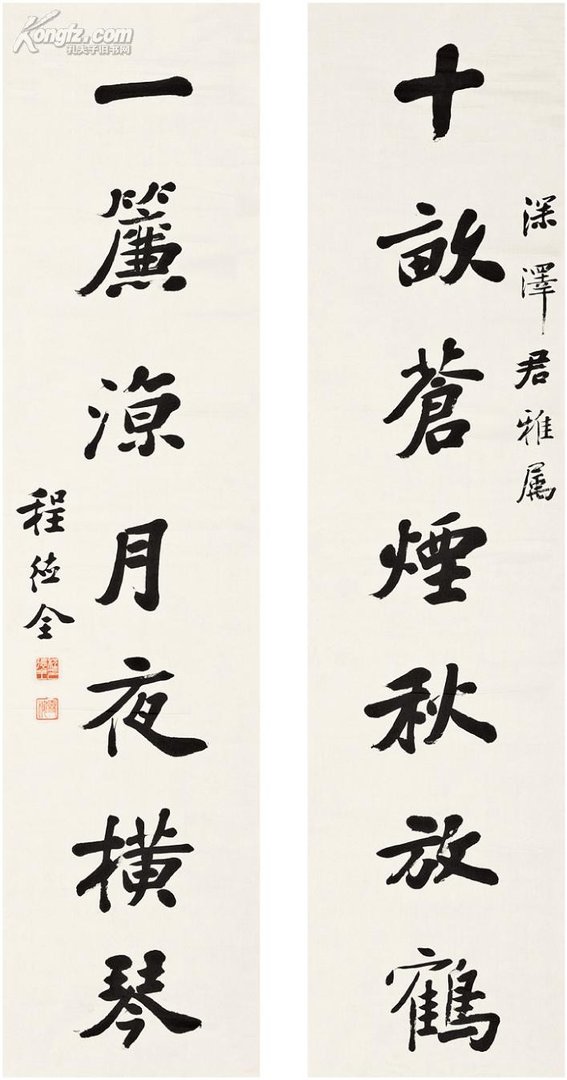 十畝蒼煙秋放鶴
深澤君雅属
一簾涼月夜橫琴
程德全
Kongfz.com
孔夫子旧书网